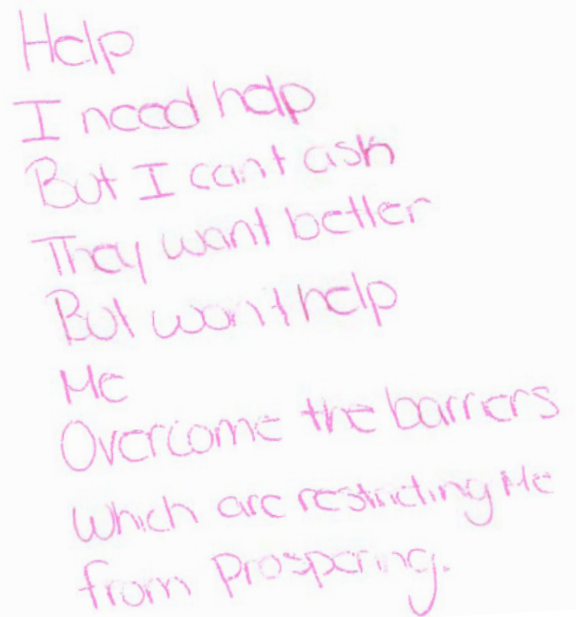 Help
I need help
But I can't ask
They want better
But won't help
Me
Overcome the barriers
which are restricting Me
from Prospering.